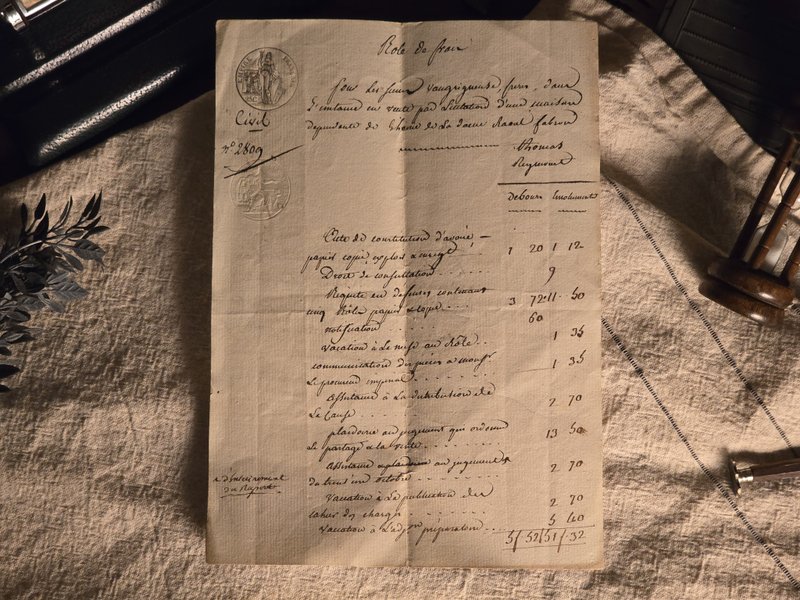 Role de frais
Pour Les sieurs vaugrigneuse, freres, dans
L'instance en vente par Licitation d'une maison
dependante de de La dame Raoul
Civil
n° 2809
Thomas
Debours Emoluments
Acte de constitution d'avoué
papier copie exploit & enregt 1 20 1 12
Droit de consultation 9
Requete en defenses contenant
cinq Rôles papier & copie 3 72 11 50
notification 60
vacation à La mise au Rôle 1 35
communication des pieces a monsr
Le procureur imperial 1 35
assistance à La distribution de
La Cause 2 70
plaidoirie au jugement qui ordonne
Le partage & la vente 13 50
assistance au jugement
du trois un octobre 2 70
d'Enterinement
du Raport
vacation à La publication du
cahier des charges 2 70
vacation à L'adjon preparatoire 5 40
5 / 52 / 51 / 32